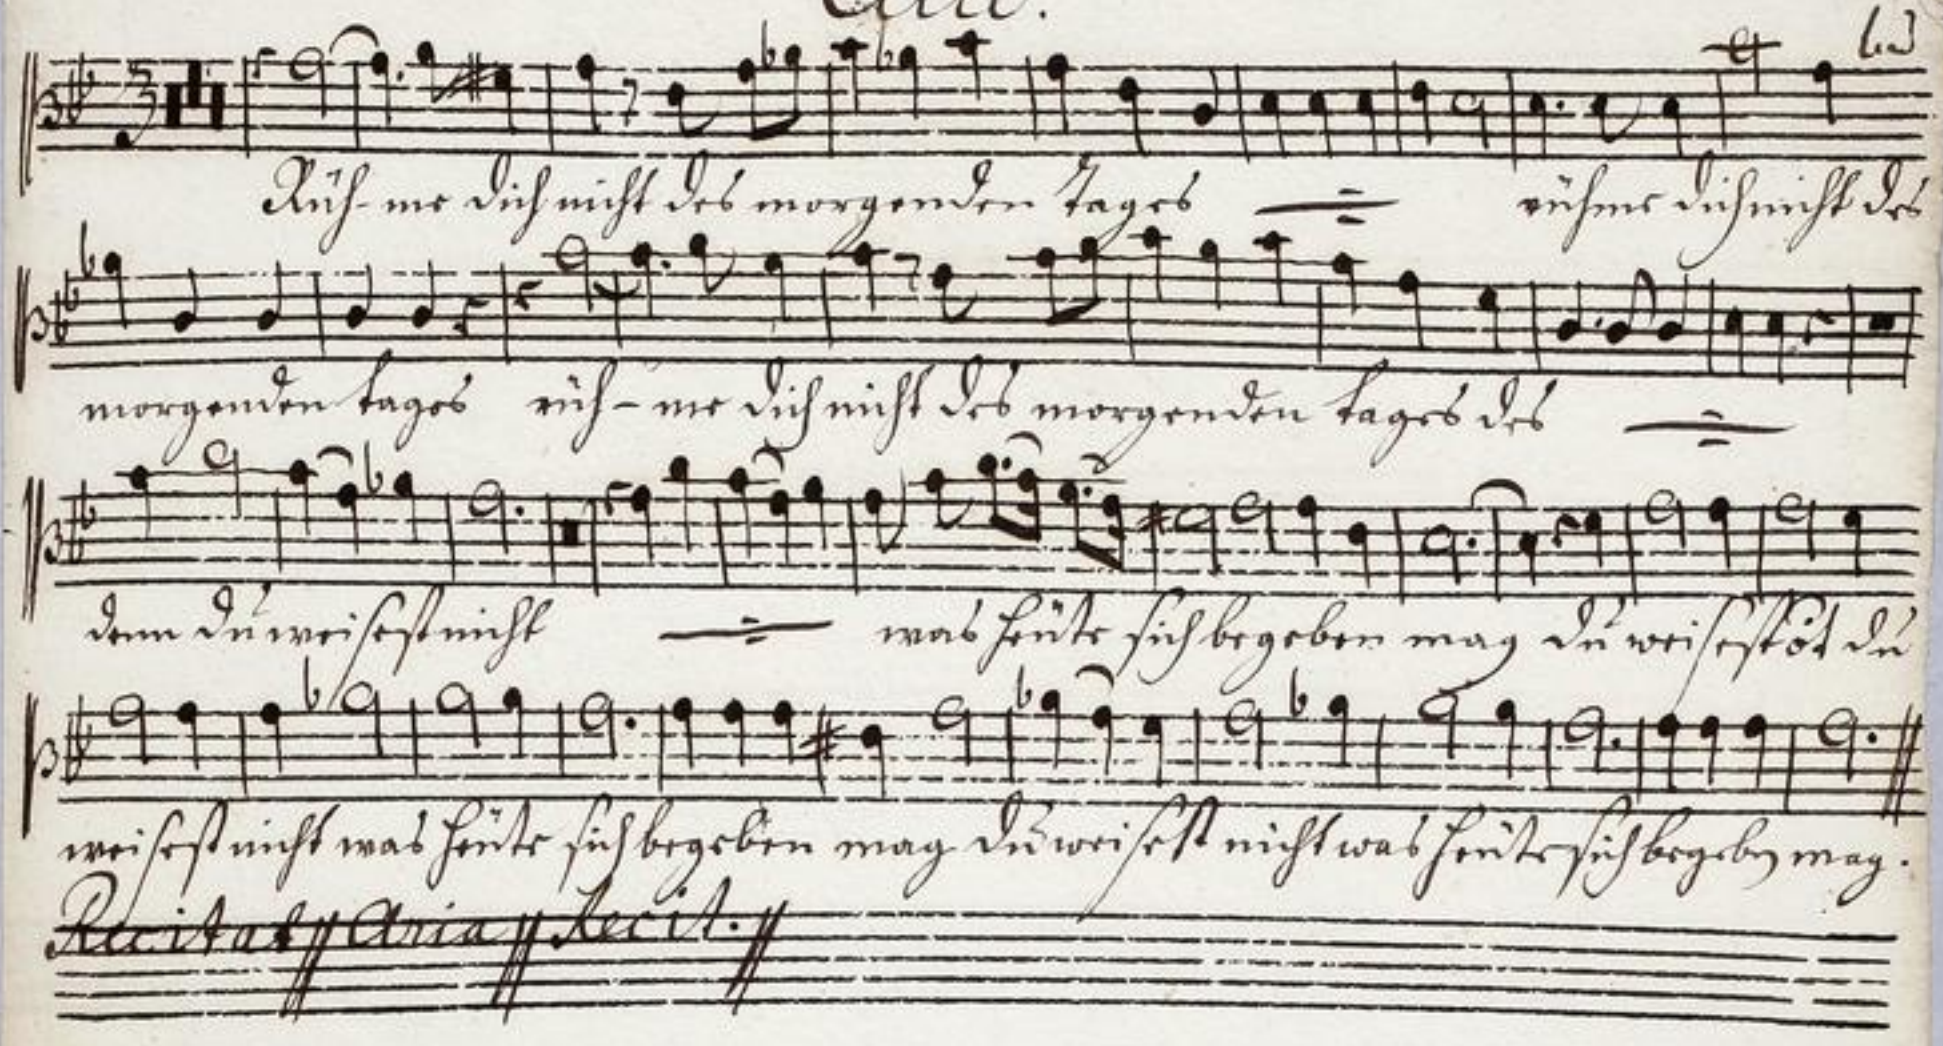 Rüh-me dich nicht des morgenden tages rühme dich nicht des
morgenden tages rüh-me dich nicht des morgenden tages des
denn du weisest nicht was heüte sich begeben mag du weisest du
weisest nicht was heüte sich begeben mag du weisest nicht was heüte sich begeben mag.
Recitat Aria Recit.